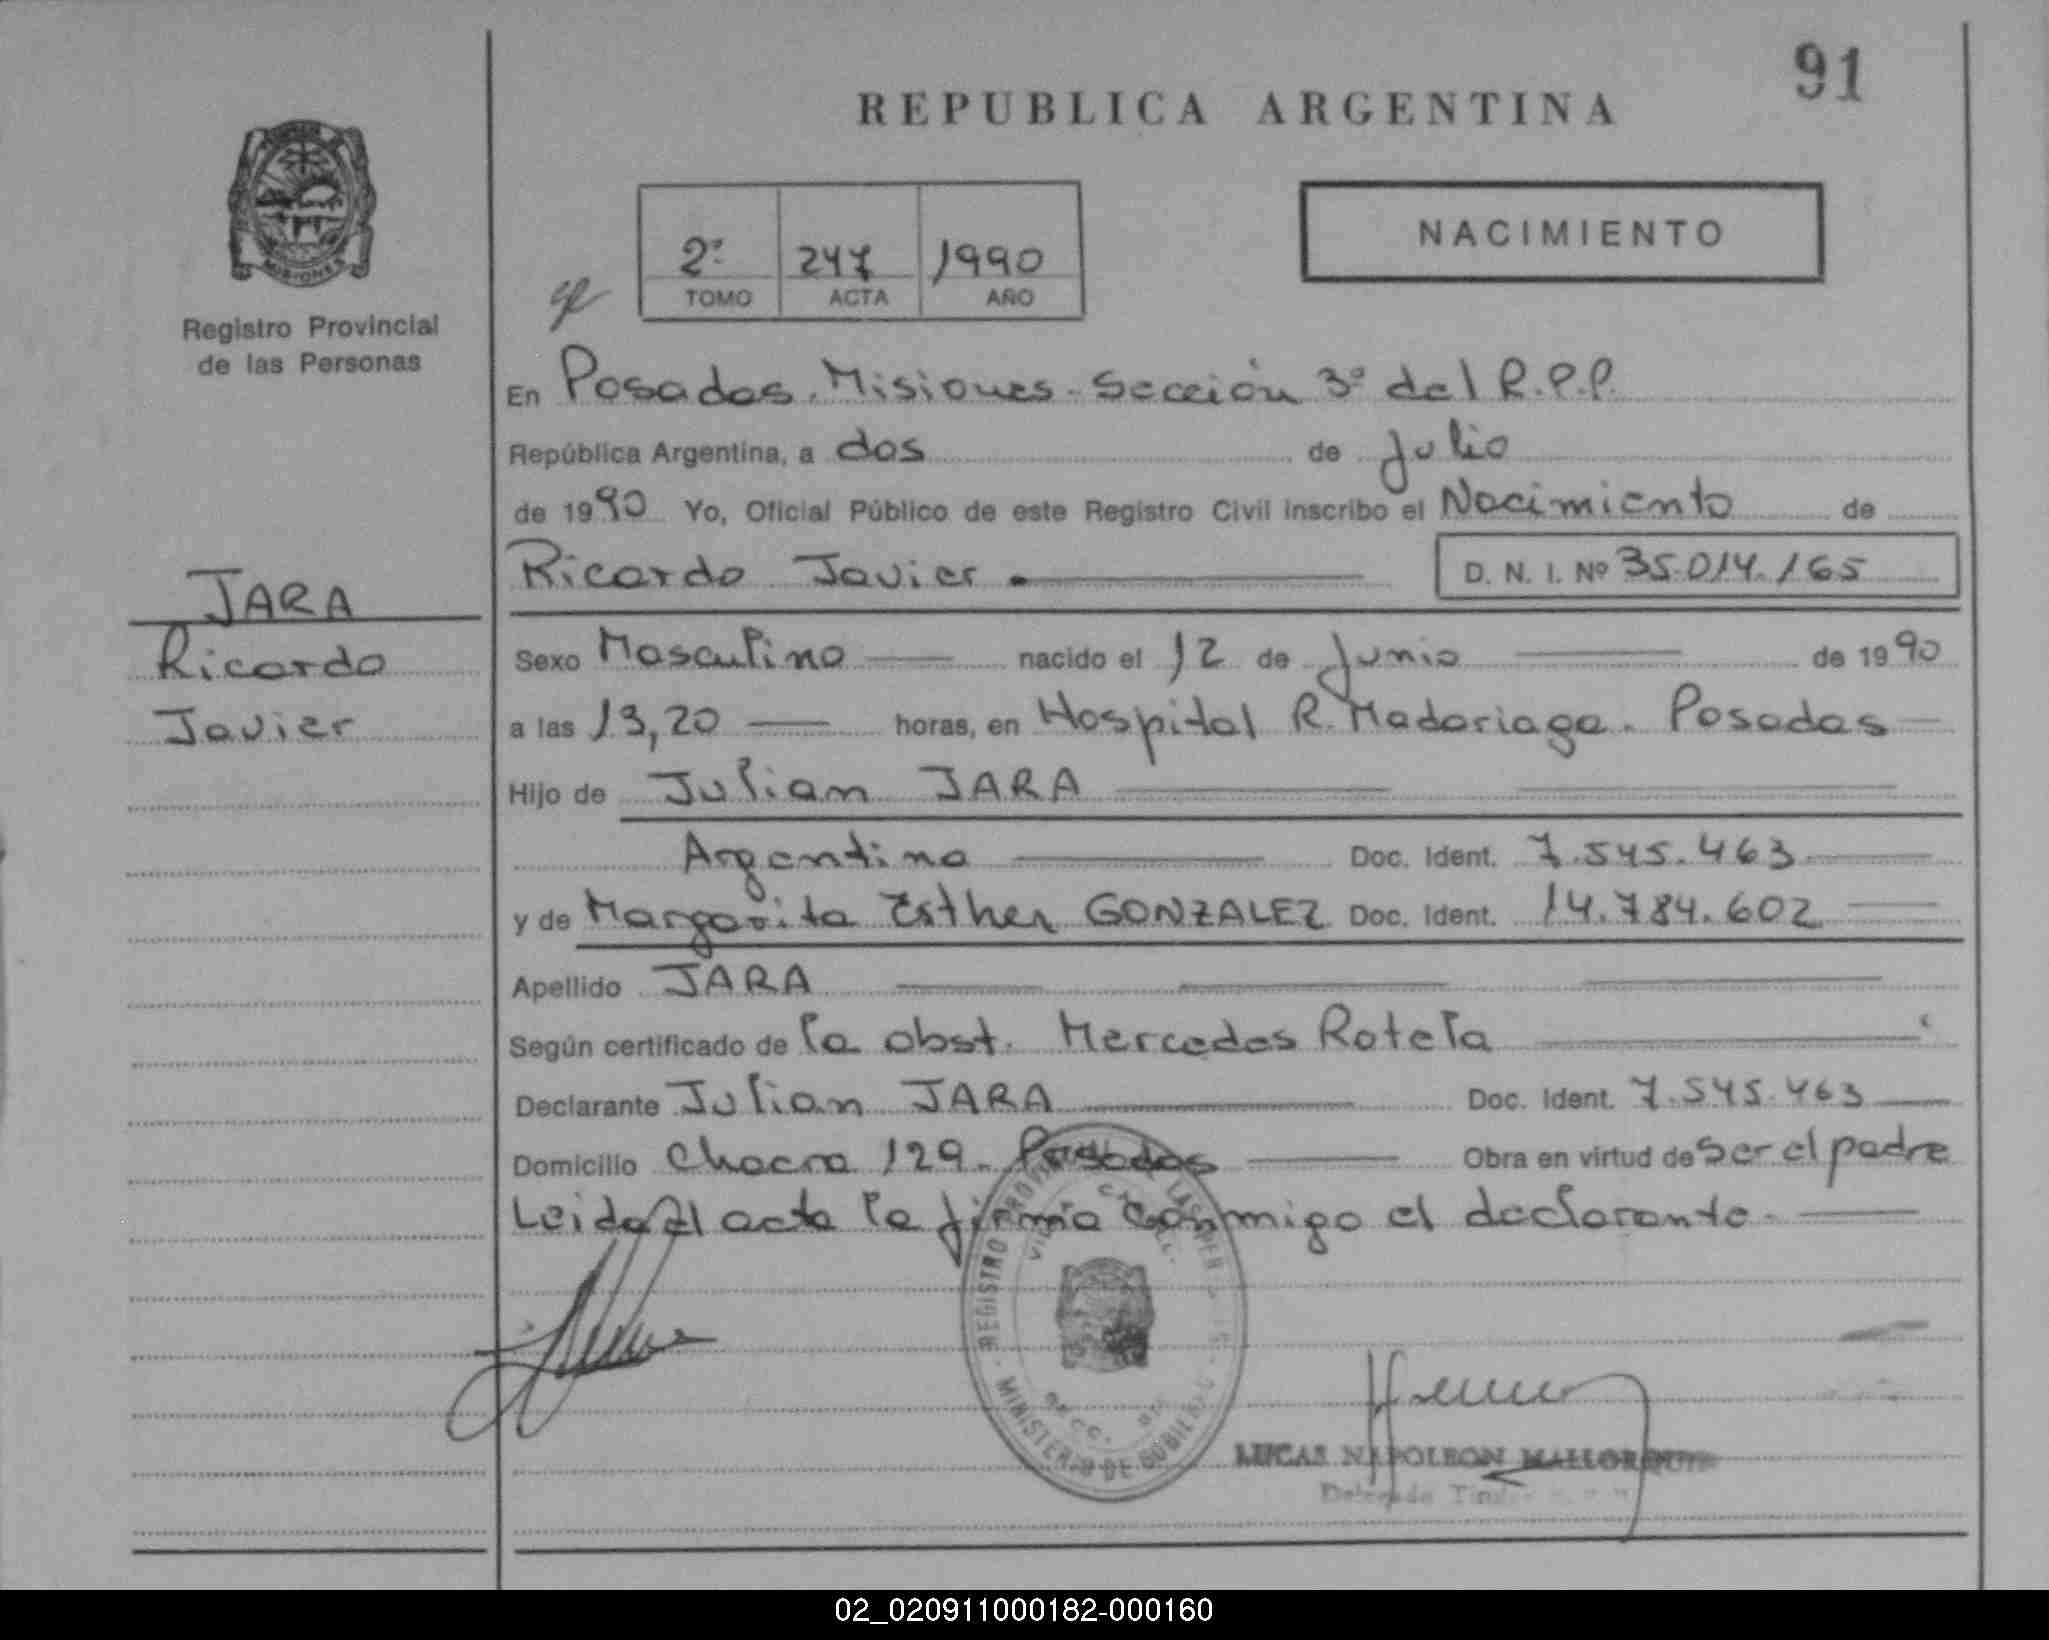 91
REPUBLICA ARGENTINA
MISIONES
Registro Provincial
de las Personas
2º 247 1990
TOMO ACTA AÑO
NACIMIENTO
En Posadas. Misiones - Sección 3º del R.P.P.
República Argentina, a dos de Julio
de 1990 Yo, Oficial Público de este Registro Civil inscribo el Nacimiento de
Ricardo Javier D. N. I. Nº 35.014.165
JARA
Ricardo
Javier
Sexo Masculino nacido el 12 de Junio de 1990
a las 13,20 horas, en Hospital R. Madariaga. Posadas
Hijo de Julian JARA
Argentino Doc. Ident. 7.545.463
y de Margarita Esther GONZALEZ Doc. Ident. 14.784.602
Apellido JARA
Según certificado de la obst. Mercedes Rotela
Declarante Julian JARA Doc. Ident. 7.545.463
Domicilio Chacra 129. Posadas Obra en virtud de ser el padre
Leida el acta la firma conmigo el declarante.
REGISTRO PROVINCIAL DE LAS PERSONAS
MINISTERIO DE GOBIERNO
LUCAS NAPOLEON MALLORQUIN
Delegado
02_020911000182-000160